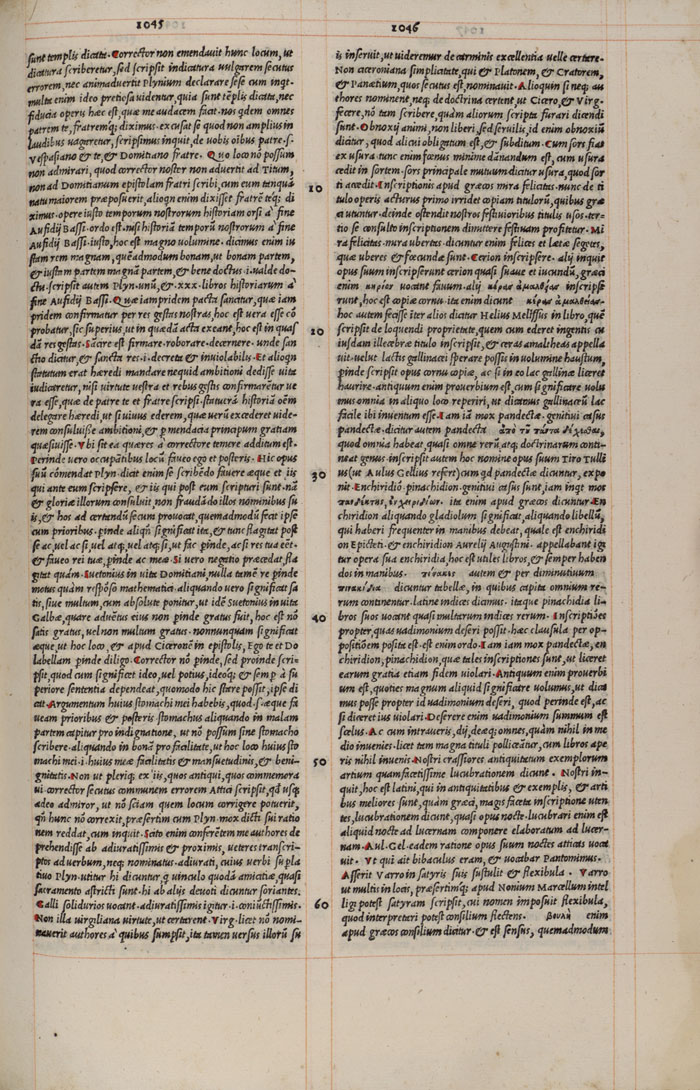 1045
sunt templis dicata. Corrector non emendauit hunc locum, ut
dicatura scriberetur, sed scripsit indicatura uulgarem secutus
errorem, nec animaduertit Plynium declarare sese cum inqt.
multa enim ideo preciosa uidentur, quia sunt tēplis dicata, nec
fiducia operis hæc est, quæ me audacem facit. nos qdem omnes
patrem te, fratremq; diximus. excusat se quod non amplius in
laudibus uagaretur, scripsimus inquit, de uobis oibus patre.s.
Vespasiano & te, & Domitiano fratre. Quo loco nō possum
non admirari, quod corrector noster non aduertit ad Titum,
non ad Domitianum epistolam fratri scribi, cum eum tanquā
natu maiorem præposuerit, alioqn enim dixisset fratrē teq; di
ximus. opere iusto temporum nostrorum historiam orsi a' fine
Aufidij Bassi. ordo est. nisi historiā temporū nostrorum a' fine
Aufidij Bassi. iusto, hoc est magno uolumine. dicimus enim iu
stam rem magnam, quēadmodum bonam, ut bonam partem,
& iustam partem magnā partem, & bene doctus .i. ualde do-
ctu. scripsit autem Plyn. unū, & .xxx. libros historiarum a'
fine Aufidij Bassi. Quæ iampridem pacta sancitur, quæ iam
pridem confirmatur per res gestas nostras, hoc est uera esse cō
probatur, sic superius, ut in quædā acta exeant, hoc est in quas
dā res gestas. Sācire est firmare. roborare. decernere. unde san
ctio dicitur, & sancta res .i. decreta & inuiolabilis. Et alioqn
statutum erat hæredi mandare nequid ambitioni dedisse uita
iudicaretur, nisi uirtute uestra et rebus gestis confirmaretur ue
ra esse, quæ de patre te et fratre scripsi. statuerā historiā oēm
delegare hæredi, ut si uiuus ederem, quæ uerū excederet uide-
rem consuluisse ambitioni, & p mendacia principum gratiam
quæsiuisse. Vbi sit ea quæres a' correctore temere additum est.
Perinde uero occupātibus locū faueo ego et posteris. Hic opus
suū cōmendat Plyn. dicit enim se scribēdo fauere æque et iis
qui ante eum scripsere, & iis qui post eum scripturi sunt. nā
& gloriæ illorum consuluit, non fraudādo illos nominibus su
is, & hos ad certandū secum prouocat, quemadmodū fecit ipse
cum prioribus. pinde aliqn significat ita, & tunc flagitat post
se ac, uel ac si, uel atq;, uel atq; si, ut fac pinde, ac si res tua eēt.
& faueo rei tuæ, pinde ac meæ. Si uero negatio præcedat fla
gitat quàm. Suetonius in uita Domitiani, nulla tamē re pinde
motus quàm respōso mathematici. aliquando uero significat sa
tis, siue multum, cum absolute ponitur, ut idē Suetonius in uita
Galbæ, quare aduētus eius non pinde gratus fuit, hoc est nō
satis gratus, uel non multum gratus. nonnunquam significat
æque, ut hoc loco, & apud Ciceronē in epistolis, Ego te et Do
labellam pinde diligo. Corrector nō pinde, sed proinde scri-
psit, quod cum significet ideo, uel potius, ideoq; & semp à su
periore sententia dependeat, quomodo hic stare possit, ipse di
cat. Argumentum huius stomachi mei habebis, quod .s. æque fa
ueam prioribus & posteris. stomachus aliquando in malam
partem capitur pro indignatione, ut nō possum sine stomacho
scribere. aliquando in bonā pro facilitate, ut hoc loco huius sto
machi mei .i. huius meæ facilitatis & mansuetudinis, & beni-
gnitatis. Non ut pleriq; ex iis, quos antiqui, quos commemora
ui. corrector secutus communem errorem Attici scripsit, qd usq;
adeo admiror, ut nō sciam quem locum corrigere potuerit,
qn hunc nō correxit, præsertim cum Plyn. mox dicti sui ratio
nem reddat, cum inquit. Scito enim conferētem me authores de
prehendisse ab adiuratissimis & proximis, ueteres transcri-
ptos ad uerbum, neq; nominatus. adiurati, cuius uerbi supla
tiuo Plyn. utitur hi dicuntur q uinculo quodā amicitiæ, quasi
sacramento astricti sunt. hi ab alijs deuoti dicuntur soriantes.
Galli soliduríos uocant. adiuratissimis igitur .i. coniūctissimis.
Non illa uirgiliana uirtute, ut certarent. Virg. licet nō nomi-
nauerit authores a' quibus sumpsit, ita tamen uersus illorū su
10
20
30
40
50
60
1046
is inseruit, ut uideremur de carminis excellentia uelle certare.
Non ciceroniana simplicitate, qui & Platonem, & Cratorem,
& Panætium, quos secutus est, nominauit. Alioquin si neq; au
thores nominent, neq; de doctrina certent, ut Cicero, & Virg.
fecere, nō tam scribere, quàm aliorum scripta furari dicendi
sunt. Obnoxij animi, non liberi, sed seruilis, id enim obnoxiū
dicitur, quod alicui obligatum est, & subditum. Cum sors fiat
ex usura. tunc enim fœnus minime dānandum est, cum usura
cedit in sortem. sors principale mutuum dicitur usura, quod sor
ti accedit. Inscriptionis apud græcos mira felicitas. nunc de ti
tulo operis acturus primo irridet copiam titulorū, quibus græ
ci utuntur. deinde ostendit nostros festiuioribus titulis usos. ter-
tio se consulto inscriptionem dimittere festiuam profitetur. Mi
ra felicitas. mira ubertas. dicuntur enim felices et lætæ segetes,
quæ uberes & fœcundæ sunt. Cerion inscripsere. alij inquit
opus suum inscripserunt cerion quasi suaue et iucundū, græci
enim κηρίον uocant fauum. alij κέρας ἀμαλθείας inscripse
runt, hoc est copiæ cornu. ita enim dicunt κέρας ἀμαλθείας.
hoc autem fecisse iter alios dicitur Helius Melissus in libro, quē
scripsit de loquendi proprietate, quem cum ederet ingentis cu
iusdam illecebræ titulo inscripsit, & ceras amaltheas appella
uit. uelut lactis gallinacei sperare possis in uolumine haustum,
pinde scripsit opus cornu copiæ, ac si in eo lac gallinæ liceret
haurire. antiquum enim prouerbium est, cum significare uolu
mus omnia in aliquo loco reperiri, ut dicamus gallinarū lac
facile ibi inuentum esse. Iam iā mox pandectæ. genitiui casus
pandectæ. dicitur autem pandecta ἀπὸ τῶ πάντα δέχεσθαι,
quod omnia habeat, quasi omne rerū, atq; doctrinarum conti-
neat genus. inscripsit autem hoc nomine opus suum Tiro Tulli
us (ut Aulus Gellius refert) cum qd pandectæ dicuntur, expo
nit. Enchiridiō. pinachidion. genitiui casus sunt. iam inqt mox
πανδέκται, ἐγχειρίδιον. ita enim apud græcos dicuntur. En
chiridion aliquando gladiolum significat, aliquando libellū,
qui haberi frequenter in manibus debeat, quale est enchiridi
on Epicteti. & enchiridion Aurelij Augustini. appellabant igi
tur opera sua enchiridia, hoc est utiles libros, & semper haben
dos in manibus. πίνακες autem & per diminutiuum
πινακίδια dicuntur tabellæ, in quibus capita omnium re-
rum continentur. latine indices dicimus. itaque pinachidia li-
bros suos uocant quasi multarum indices rerum. Inscriptiōes
propter, quas uadimonium deseri possit. hæc clausula per op-
positiōem posita est. est enim ordo. Iam iam mox pandectæ, en
chiridion, pinachidion, quæ tales inscriptiones sunt, ut liceret
earum gratia etiam fidem uiolari. Antiquum enim prouerbi
um est, quoties magnum aliquid significare uolumus, ut dica
mus posse propter id uadimonium deseri, quod perinde est, ac
si diceret ius uiolari. Deserere enim uadimonium summum est
scelus. Ac cum intraueris, dij, deæq; omnes, quàm nihil in me
dio inuenies. licet tam magna tituli polliceātur, cum libros ape
ris nihil inuenis. Nostri crassiores antiquitatum exemplorum
artium quam facetissime lucubrationem dicunt. Nostri in-
quit, hoc est latini, qui in antiquitatibus & exemplis, & arti
bus meliores sunt, quàm græci, magis faceta inscriptione uten
tes, lucubrationem dicunt, quasi opus nocte. lucubrari enim est
aliquid nocte ad lucernam componere elaboratum ad lucer-
nam. Aul. Gel. eadem ratione opus suum noctes atticas uoca
uit. Vt qui ait bibaculus eram, & uocabar Pantomimus.
Asserit Varro in satyris suis sustulit & flexibula. Varro
ut multis in locis, præsertimq; apud Nonium Marcellum intel
ligi potest satyram scripsit, cui nomen imposuit flexibula,
quod interpreteri potest consilium flectens. βουλὴ enim
apud græcos consilium dicitur. & est sensus, quemadmodum